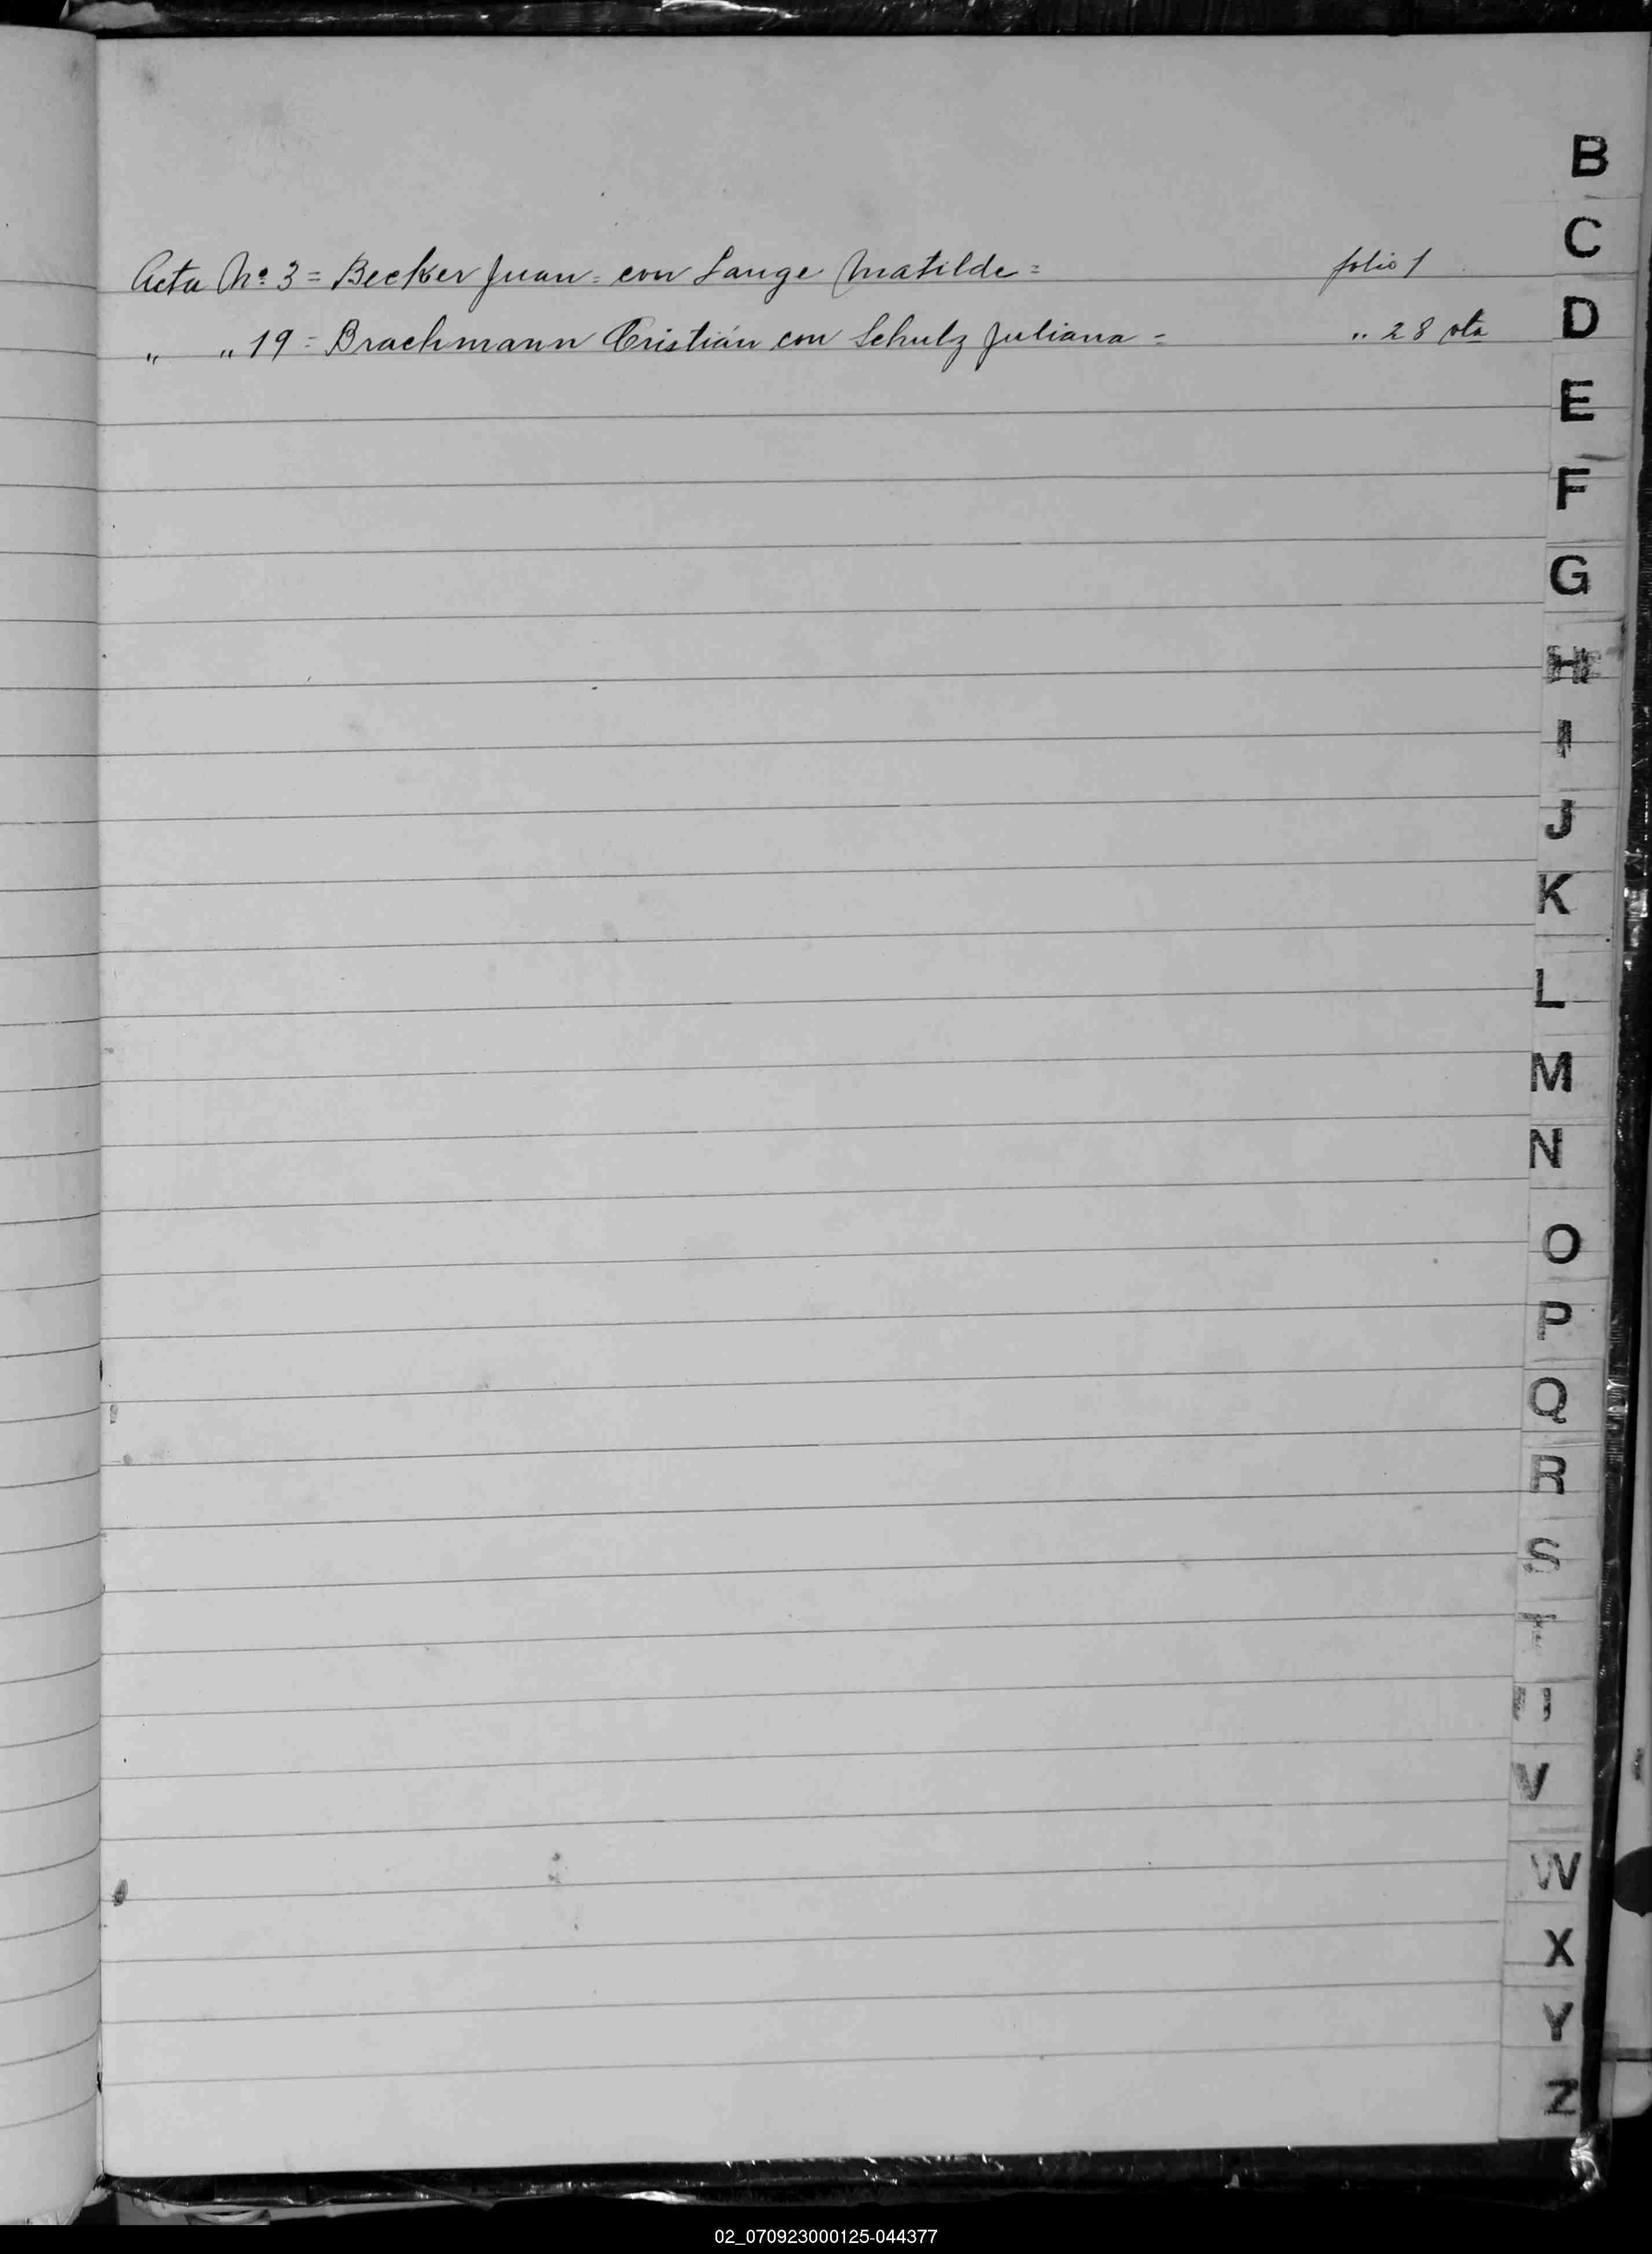 B
C
Acta No. 3 = Becker Juan = con Lange Matilde = folio 1
D
" " 19 = Brachmann Cristián con Schulz Juliana = " 28 vta
E
F
G
H
I
J
K
L
M
N
O
P
Q
R
S
T
U
V
W
X
Y
Z
02_070923000125-044377